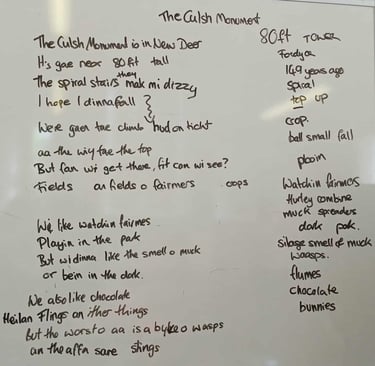 The Culsh Monument
The Culsh Monument is in New Deer
It's gae near 80ft tall
The spiral stairs they mak mi dizzy
I hope I dinna fall
Were gaen tae climb hud on ticht
aa the wiy tae the top
But fan wi get there, fit can wi see?
Fields an fields o fairmers cops
We like watchin fairmes
Playin in the pak
But wi dinna like the smell o muck
or bein in the dark.
We also like chocolate
Heilan Flings an ither things
But the worst o aa is a byke o wasps
an the affa sare stings
80ft Tower
149 years ago
Spiral
top up
crop.
ball small fall
plain
Watchin fairmes
Hurley combine
muck spreaders
dark pak.
silage smell of muck
waasps.
flumes
chocolate
bunnies